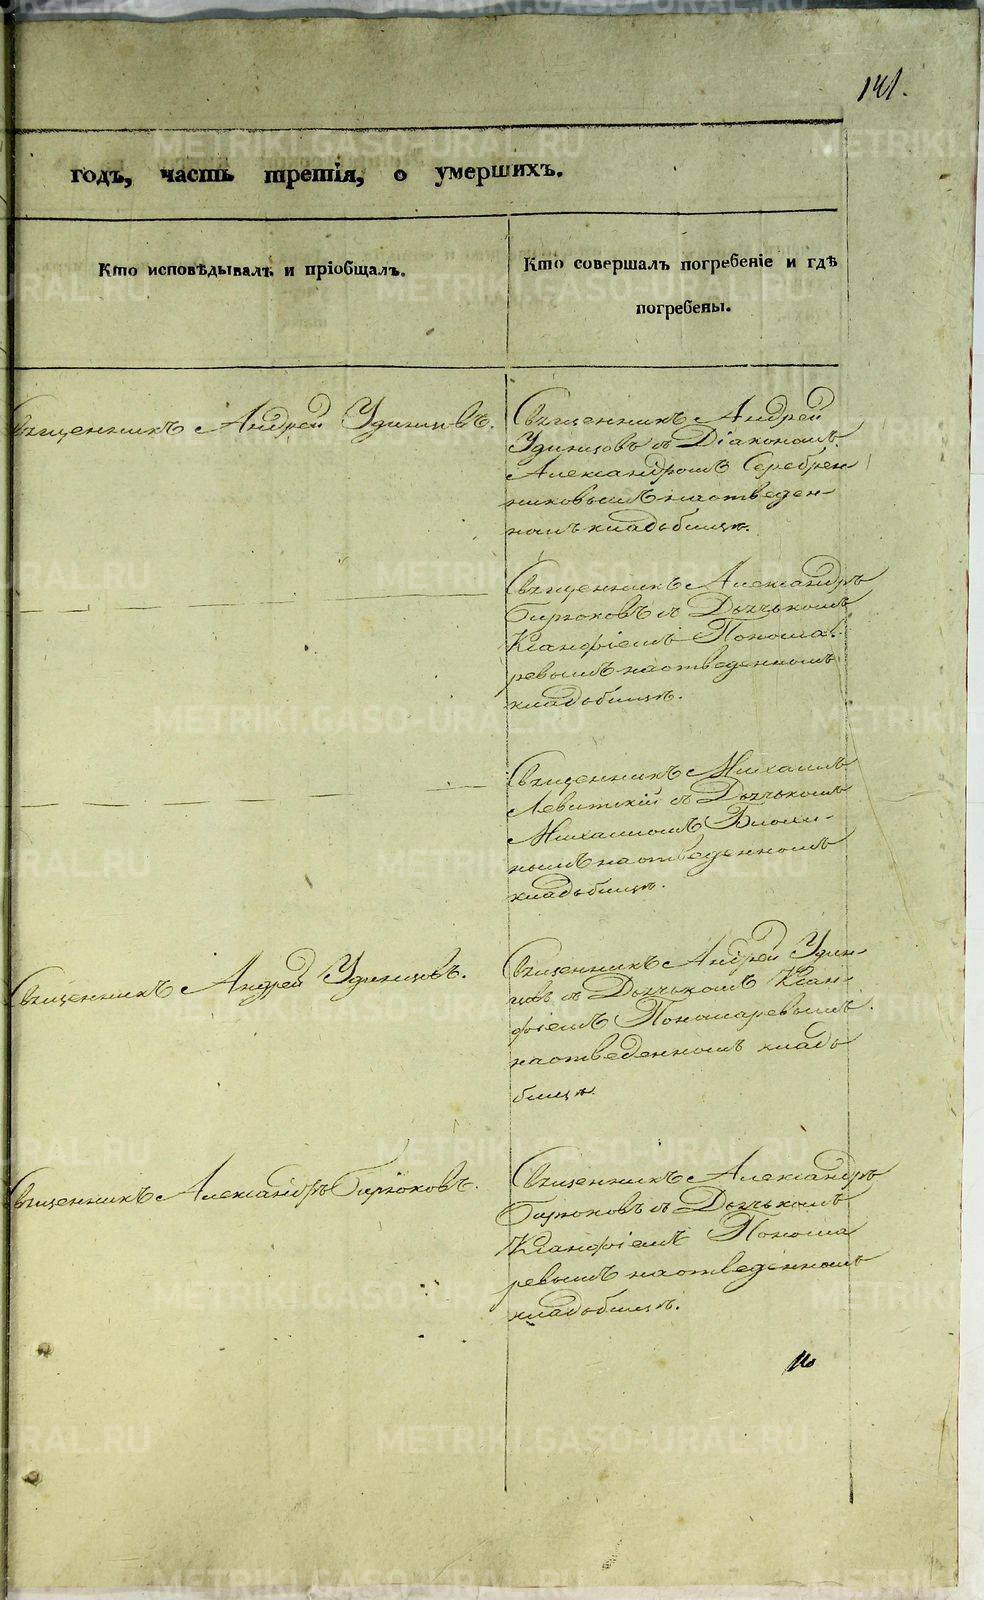 141.
годъ, часть третія, о умершихъ.
Кто исповѣдывалъ и пріобщалъ.
Кто совершалъ погребеніе и гдѣ
погребены.
Священникъ Андрей Удинцовъ.
Священникъ Андрей
Удинцовъ съ Діакономъ
Александромъ Серебрен-
никовымъ на отведен-
номъ кладбищѣ.
Священникъ Александръ
Бирюковъ съ Дьячькомъ
Ксанфіемъ Понома-
ревымъ на отведенномъ
кладбищѣ.
Священникъ Михаилъ
Левитскій съ Дьячькомъ
Михаиломъ
номъ на отведенномъ
кладбищѣ.
Священникъ Андрей Удинцовъ.
Священникъ Андрей Удин-
цовъ съ Дьячькомъ Ксан-
фіемъ Пономаревымъ
на отведенномъ кладь
бищѣ.
Священникъ Александръ Бирюковъ.
Священникъ Александръ
Бирюковъ съ Дьячькомъ
Ксанфіемъ Понома
ревымъ на отведенномъ
кладбищѣ.
METRIKI.GASO-URAL.RU